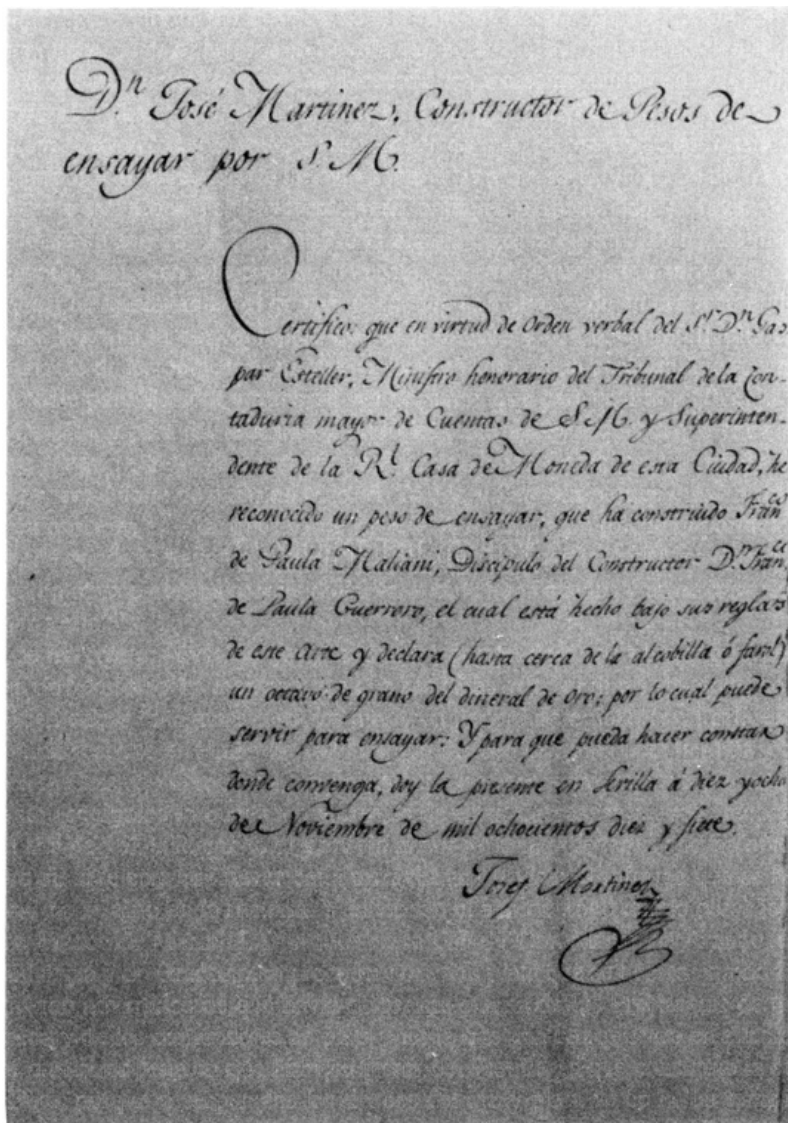 D.ⁿ José Martinez, Constructor de Pesos de
ensayar por S. M.
Certifico: que en virtud de Orden verbal del S.ʳ D.ⁿ Gas
par Esteller, Ministro honorario del Tribunal de la Con-
taduria mayor de Cuentas de S. M. y Superinten-
dente de la R.ˡ Casa de Moneda de esta Ciudad, he
reconocido un peso de ensayar, que ha construido Franᶜᵒ
de Paula Maliani, Discipulo del Constructor D.ⁿ Franᶜᵒ
de Paula Guerrero, el cual está hecho bajo sus reglas
de este Arte y declara (hasta cerca de la alcobilla ó farol)
un octavo de grano del dineral de oro; por lo cual puede
servir para ensayar: Y para que pueda hacer constar
donde convenga, doy la presente en Sevilla á diez y ocho
de Noviembre de mil ochocientos diez y siete.
Josef Martinez